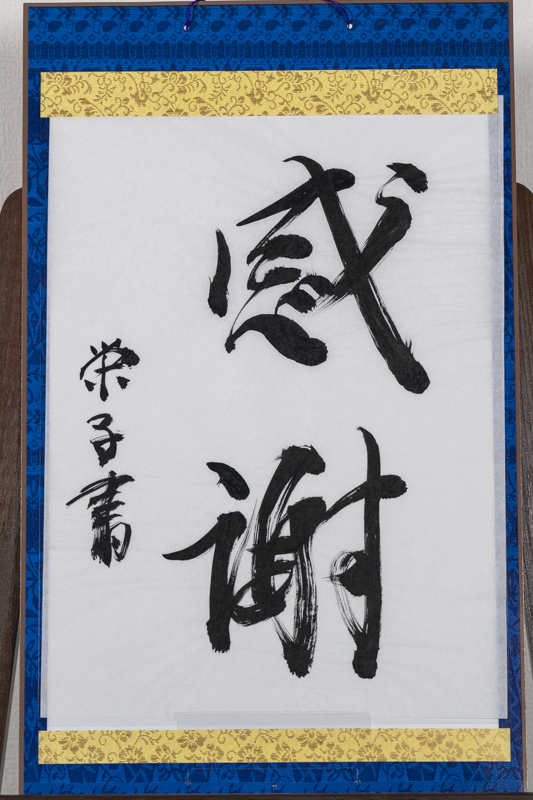 感謝
栄子書